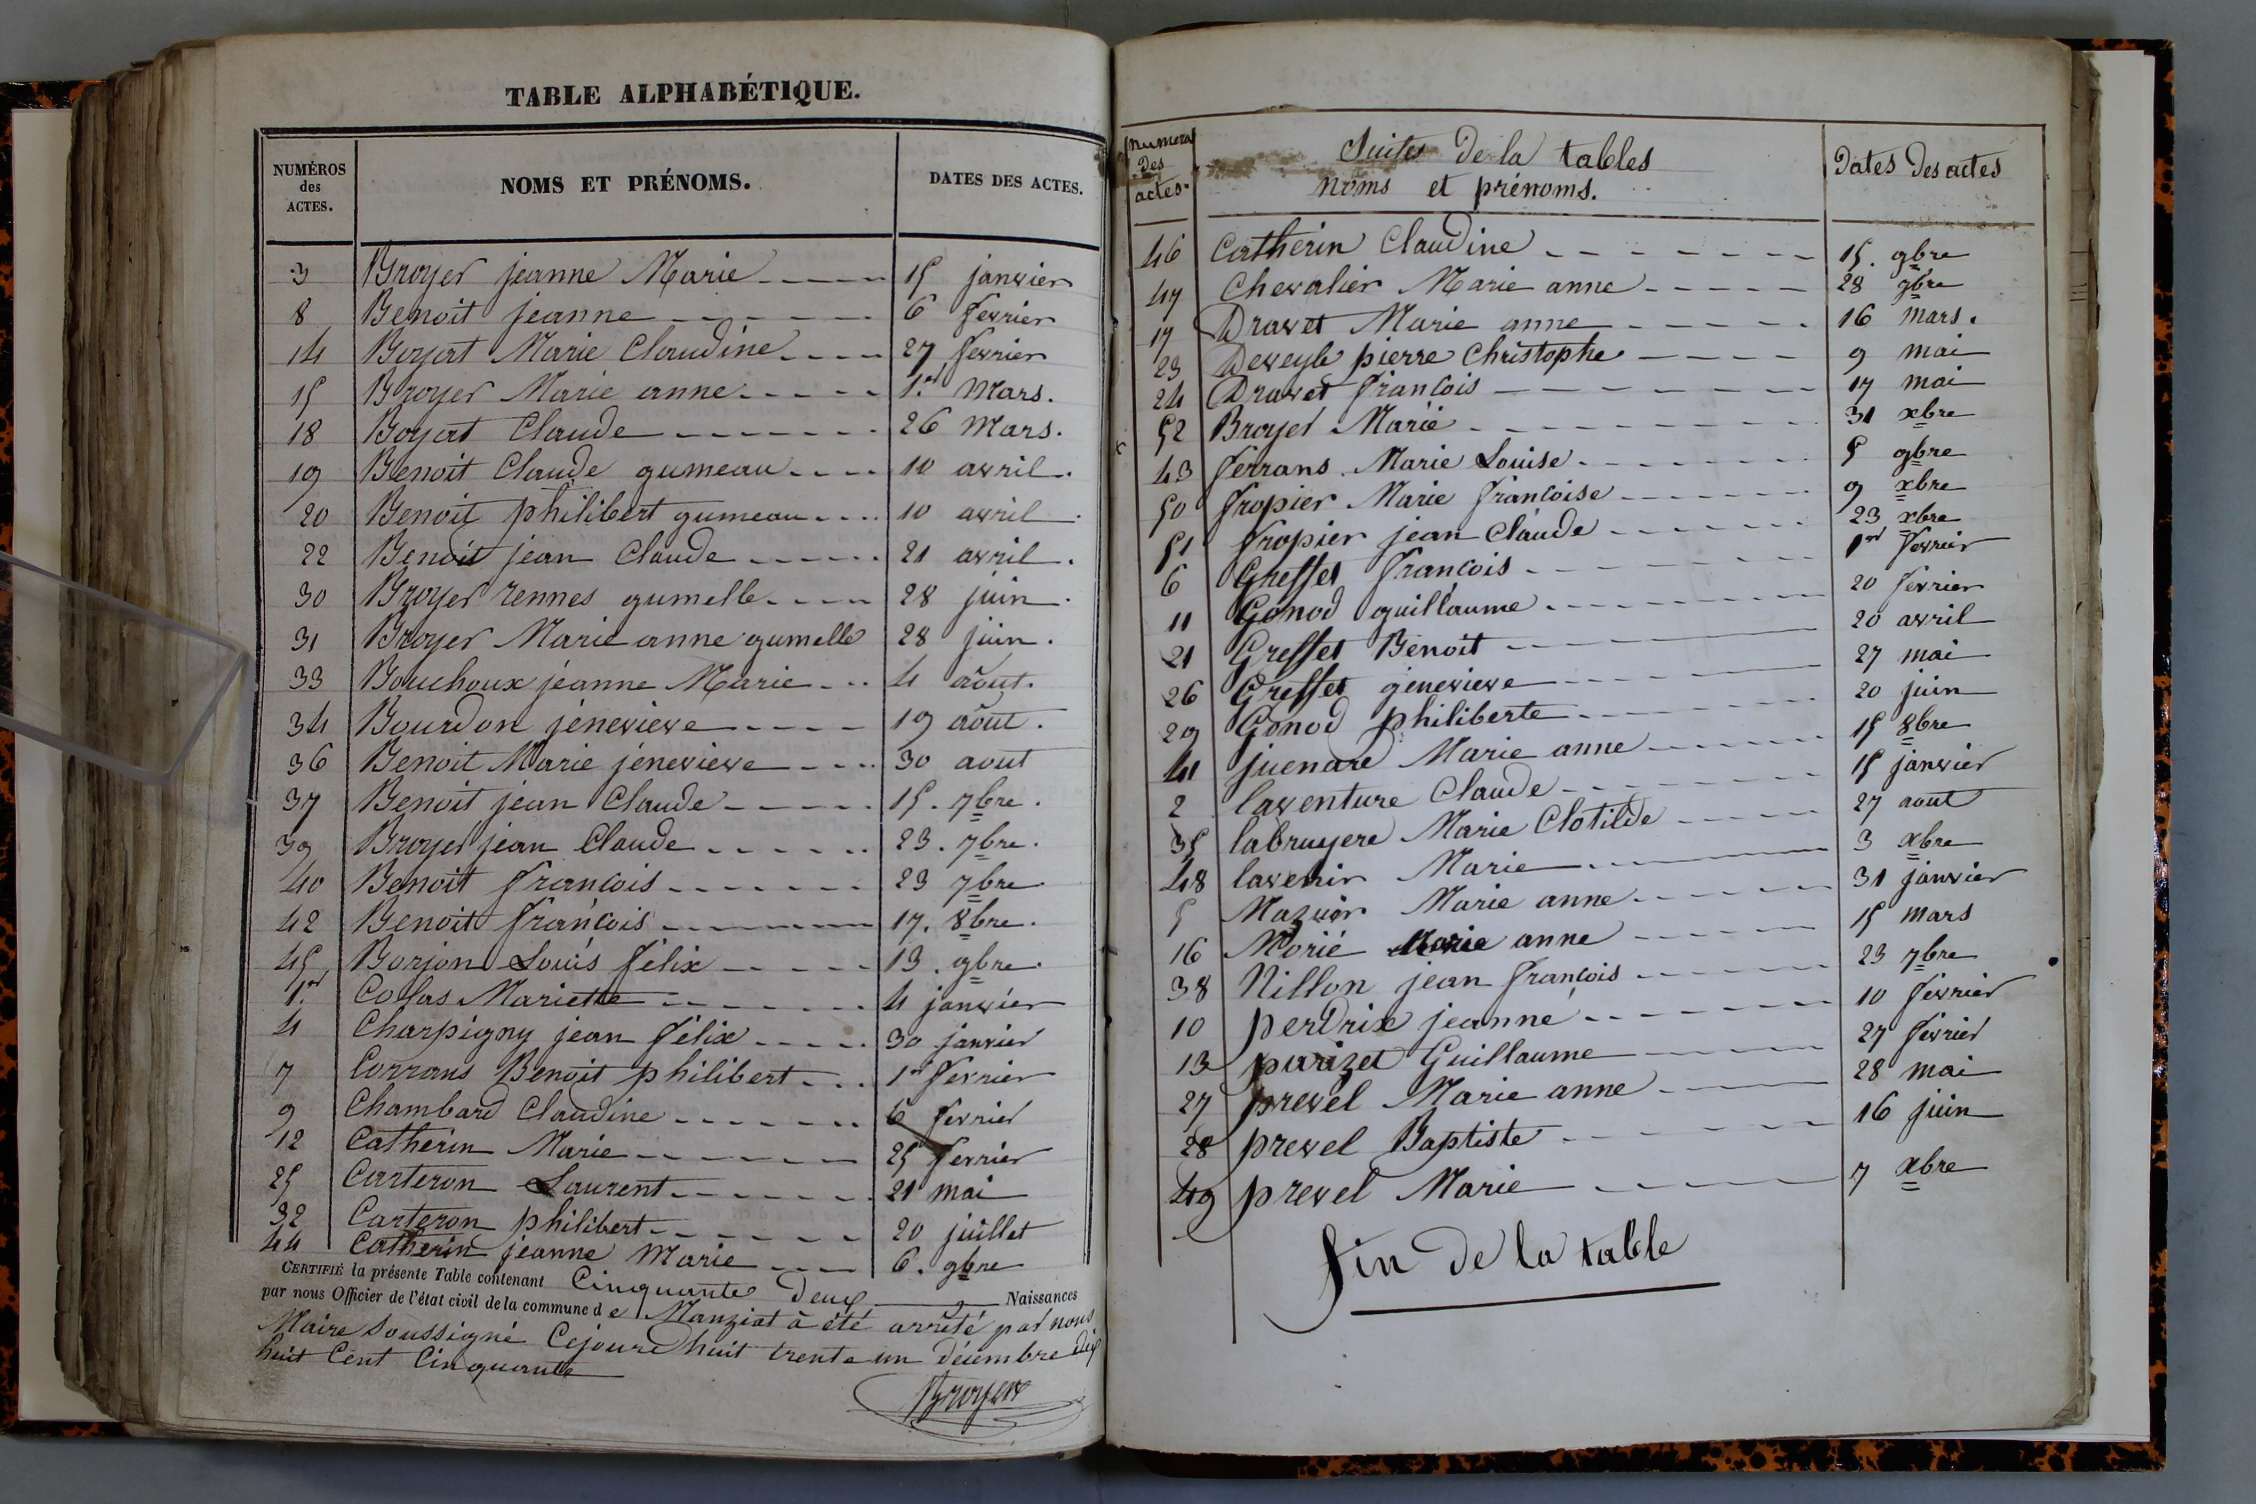 TABLE ALPHABÉTIQUE.
NUMÉROS des ACTES. NOMS ET PRÉNOMS. DATES DES ACTES.
3 Broyer jeanne Marie 15 janvier
8 Benoit jeanne 6 fevrier
14 Boyat Marie Claudine 27 fevrier
15 Broyer Marie anne 1.er Mars.
18 Boyat Claude 26 Mars.
19 Benoit Claude gumeau 10 avril.
20 Benoit philibert gumeau 10 avril.
22 Benoit jean Claude 21 avril.
30 Broyer rennes gumelle 28 juin.
31 Broyer Marie anne gumelle 28 juin.
33 Bouchoux jeanne Marie 4 août.
34 Bourdon jénevieve 19 août.
36 Benoit Marie jénevieve 30 aout
37 Benoit jean Claude 15. 7bre.
39 Broyer jean Claude 23. 7bre.
40 Benoit francois 23 7bre
42 Benoit francois 17. 8bre.
45 Borjon Louis félix 13. 9bre.
1.er Colas Mariette 4 janvier
4 Charpigny jean félix 30 janvier
7 Corrans Benoit philibert 1er fevrier
9 Chambard Claudine 6 fevrier
12 Catherin Marie 25 fevrier
25 Carteron Laurent 21 mai
32 Carteron philibert 20 juillet
44 Catherin jeanne Marie 6. 9bre
CERTIFIÉ la présente Table contenant Cinquante deux Naissances
par nous Officier de l'état civil de la commune de Manziat à été arrêté par nous
Maire Soussigné Cejourd huit trente un décembre dix
huit Cent Cinquante
Broyer
numero des actes. Suites de la tables noms et prénoms. Dates Des actes
46 Catherin Claudine 15. 9bre
47 Chevalier Marie anne 28 9bre
17 Dravet Marie anne 16 mars.
23 Deveyle pierre Christophe 9 mai
24 Dravet francois 17 mai
52 Broyer Marie 31 xbre
43 ferrans Marie Louise 5 9bre
50 fropier Marie francoise 9 xbre
51 fropier jean Claude 23 xbre
6 Greffet francois 1er fevrier
11 Gonod guillaume 20 fevrier
21 Greffet Benoit 20 avril
26 Greffet genevieve 27 mai
29 Gonod philiberte 20 juin
41 juenard Marie anne 15 8bre
2 laventure Claude 15 janvier
35 labruyere Marie Clotilde 27 aout
48 lavenir Marie 3 xbre
5 Mazuir Marie anne 31 janvier
16 Morié Marie anne 15 mars
38 Nillon jean francois 23 7bre
10 perdrix jeanne 10 fevrier
13 parizet Guillaume 27 fevrier
27 prevel Marie anne 28 mai
28 prevel Baptiste 16 juin
49 prevel Marie 7 xbre
fin de la table